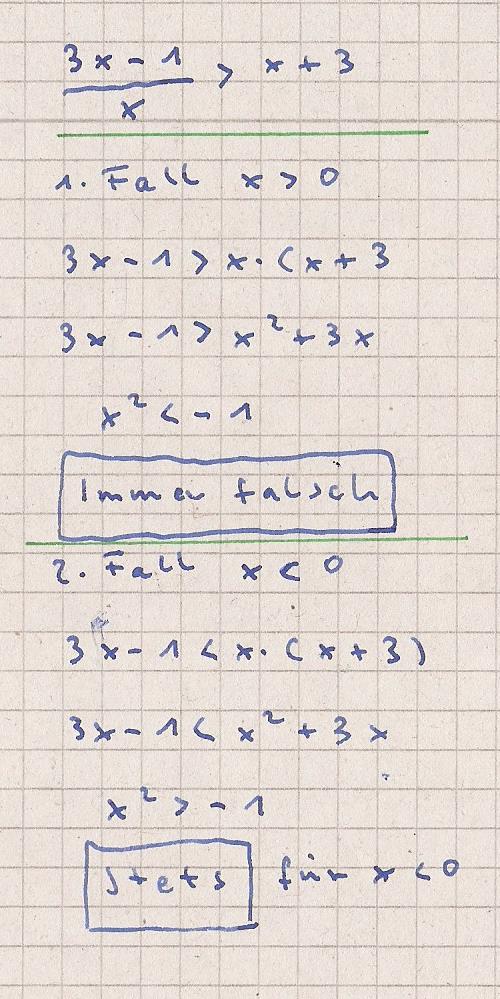 3x - 1
x
> x + 3
1. Fall x > 0
3x - 1 > x · (x + 3
3x - 1 > x² + 3x
x² < - 1
Immer falsch
2. Fall x < 0
3x - 1 < x · (x + 3)
3x - 1 < x² + 3x
x² > - 1
Stets für x < 0